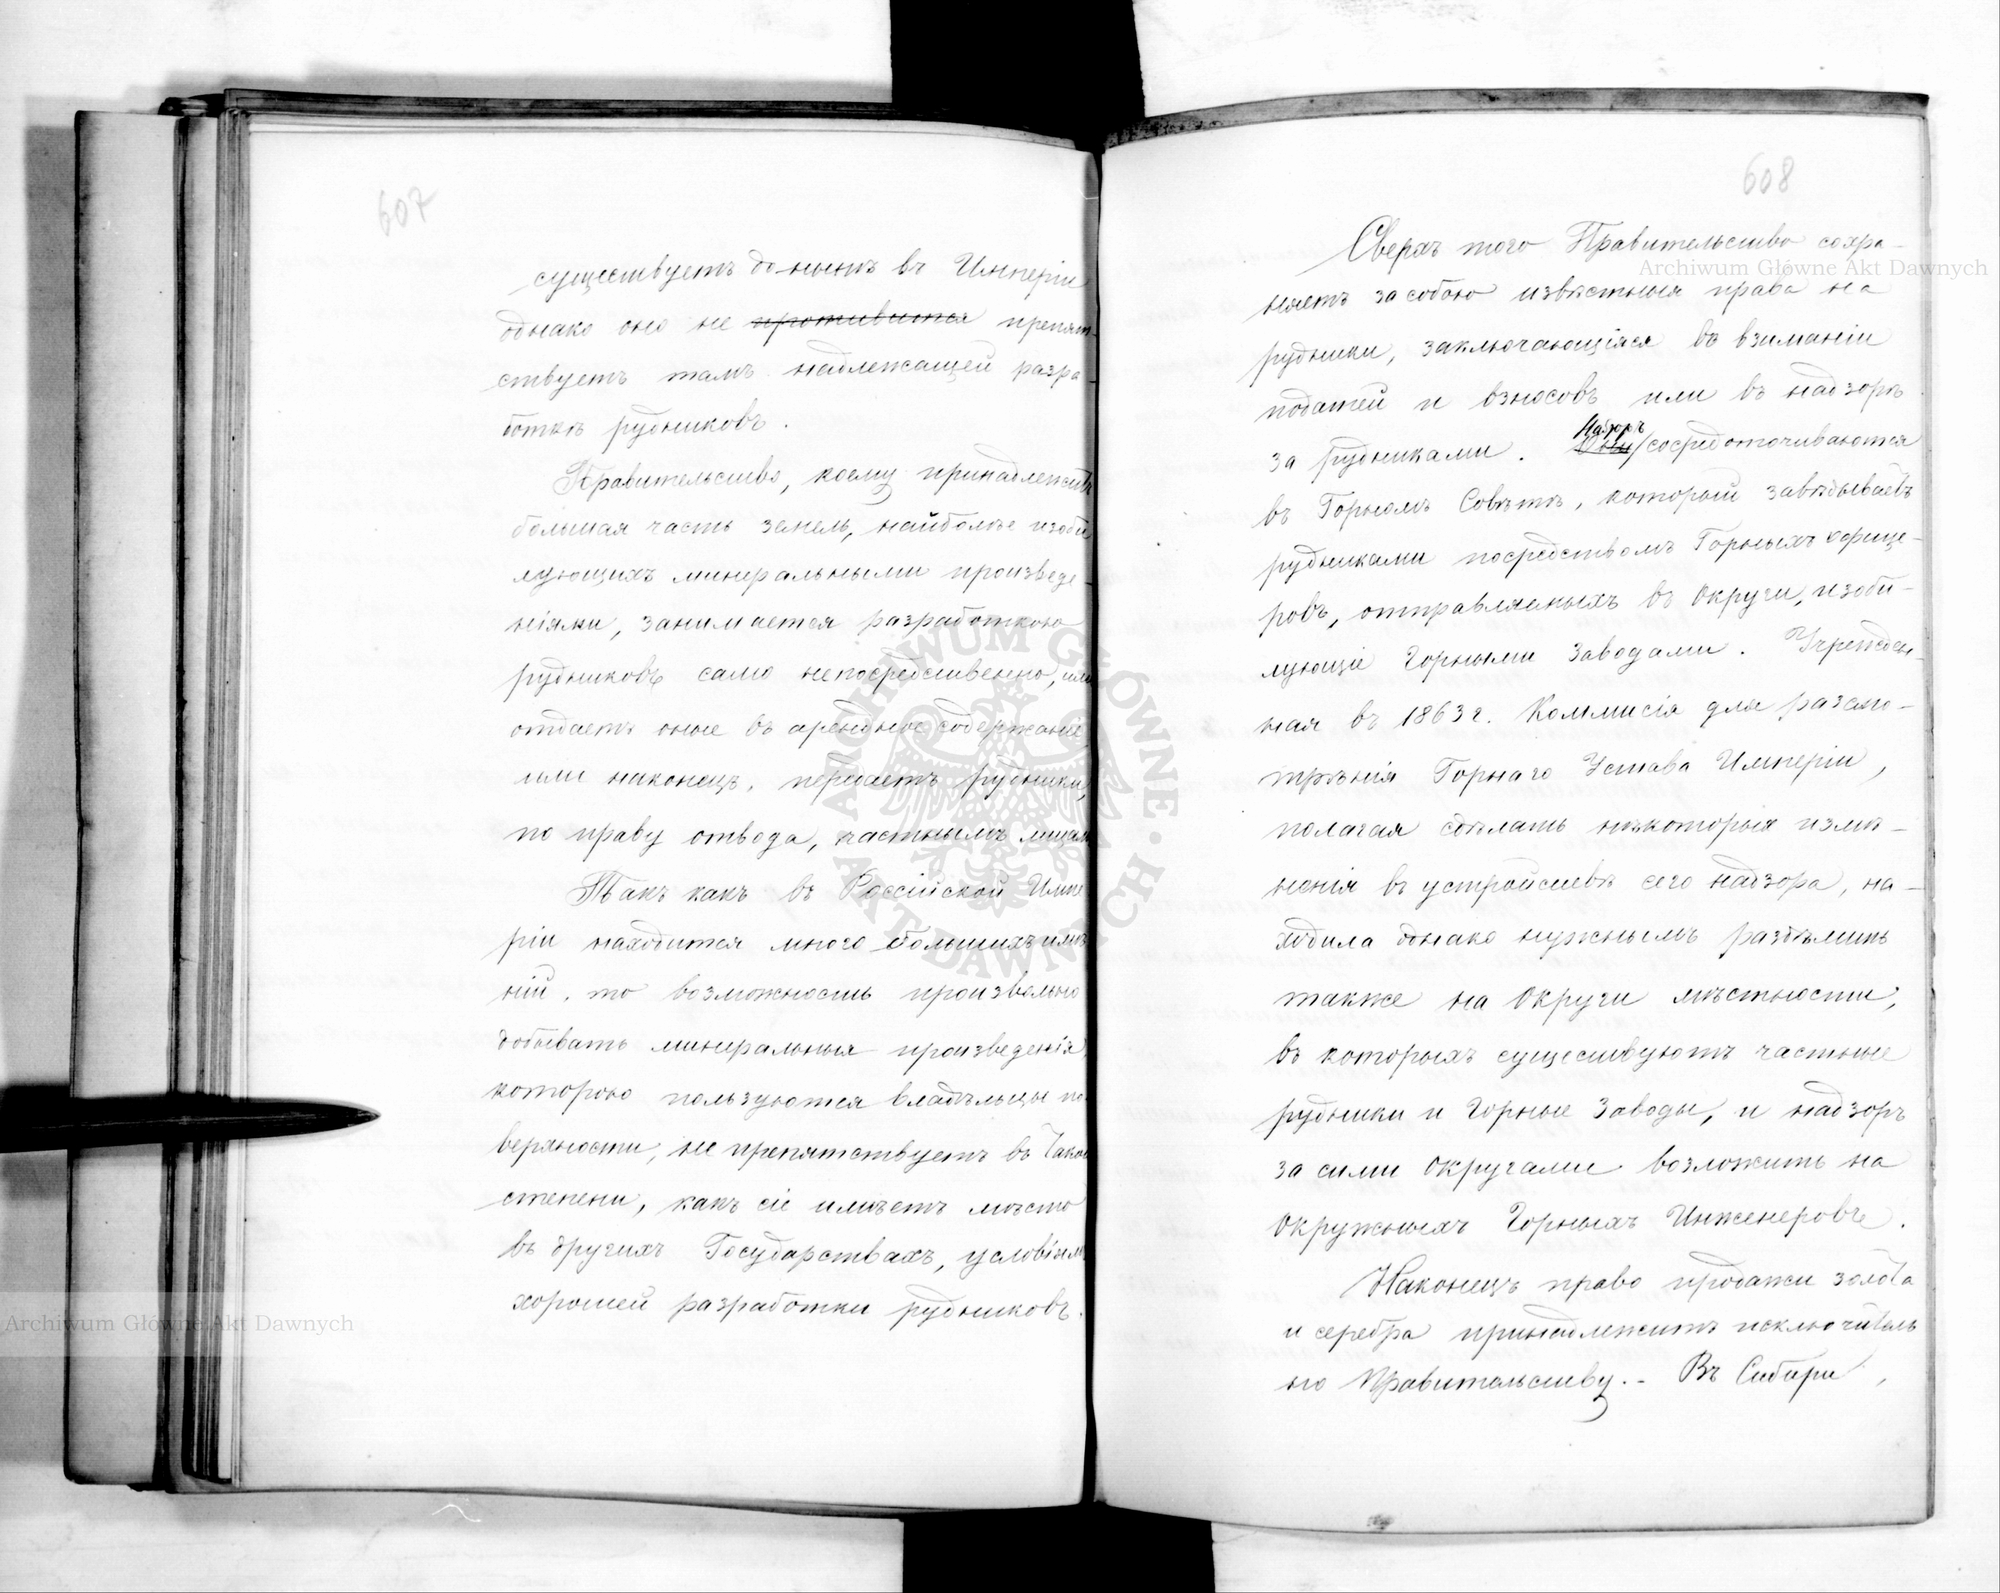 607
существуетъ до-нынѣ въ Имперіи
однако оно не противится препят-
ствуетъ тамъ надлежащей разра-
боткѣ рудниковъ.
Правительство, коему принадлежитъ
большая часть земель, наиболѣе изоби
лующихъ минеральными произведе-
ніями, занимается разработкою
рудниковъ само непосредственно, или
отдаетъ оные въ арендное содержаніе,
или наконецъ, передаетъ рудники,
по праву отвода, частнымъ лицамъ
Такъ какъ въ Россійской Импе
ріи находится много большихъ имѣ
ній, то возможность произвольно
добывать минеральныя произведенія,
которою пользуются владѣльцы по
верхности, не препятствуетъ въ такой
степени, какъ сіе имѣетъ мѣсто
въ другихъ Государствахъ, условіямъ
хорошей разработки рудниковъ.
608
Сверхъ того Правительство сохра-
няетъ за собою извѣстныя права на
рудники, заключающіяся въ взиманіи
податей и взносовъ или въ надзорѣ
Надзоръ
за рудниками. Они/сосредоточиваются
въ Горномъ Совѣтѣ, который завѣдываетъ
рудниками посредствомъ Горныхъ офице-
ровъ, отправляемыхъ въ Округи, изоби-
лующіе Горными Заводами. Учрежден-
ная въ 1863 г. Коммисія для разсмо-
трѣнія Горнаго Устава Имперіи,
полагая сдѣлать нѣкоторыя измѣ-
ненія въ устройствѣ сего надзора, на-
ходила однако нужнымъ раздѣлить
также на Округи мѣстности,
въ которыхъ существуютъ частные
рудники и Горные Заводы, и надзоръ
за сими Округами возложить на
Окружныхъ Горныхъ Инженеровъ.
Наконецъ право продажи золота
и серебра принадлежитъ исключитель
но Правительству.- Въ Сибири,
Archiwum Główne Akt Dawnych
Archiwum Główne Akt Dawnych
ARCHIWUM GŁÓWNE · AKT DAWNYCH ·